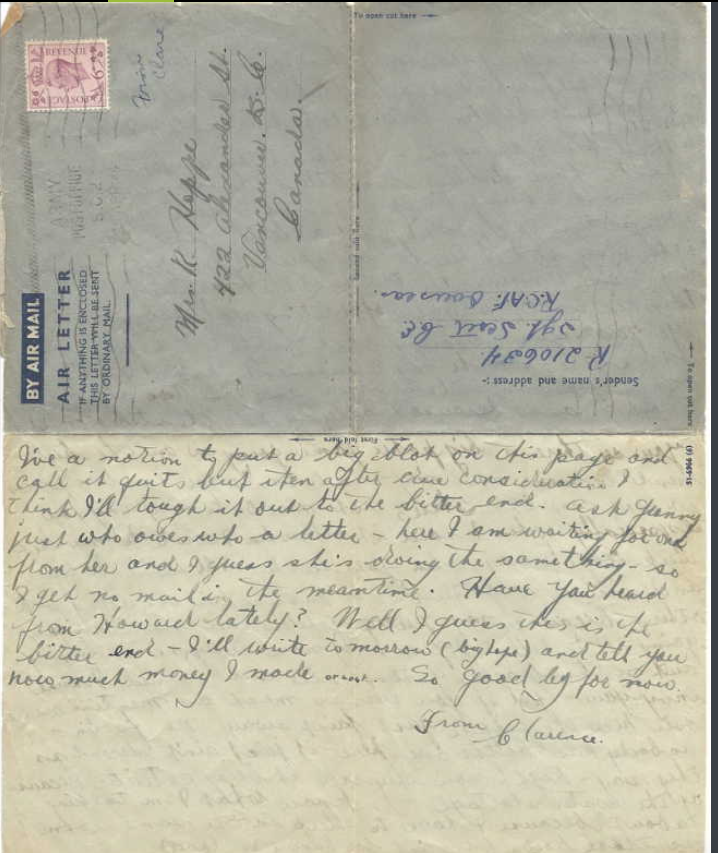 To open cut here
POSTAGE
REVENUE
6D
From
Clare
ARMY
POST OFFICE
S.C.2
BY AIR MAIL
AIR LETTER
IF ANYTHING IS ENCLOSED
THIS LETTER WILL BE SENT
BY ORDINARY MAIL.
Mrs. K. Hoppe
422 Alexander St.
Vancouver. B.C.
Canada.
Second fold here
Sender's name and address :-
R 210634
Sgt. Scott C.E.
R.C.A.F. Overseas.
To open cut here
First fold here
51-4966 (6)
I've a notion to put a big blot on this page and
call it quits but then after due consideration I
think I'll tough it out to the bitter end. Ask Jenny
just who owes who a letter - here I am waiting for one
from her and I guess she's doing the same thing - so
I get no mail in the meantime. Have you heard
from Howard lately? Well I guess this is the
bitter end - I'll write tomorrow (big hope) and tell you
how much money I made or not. So good by for now
From
Clarence.